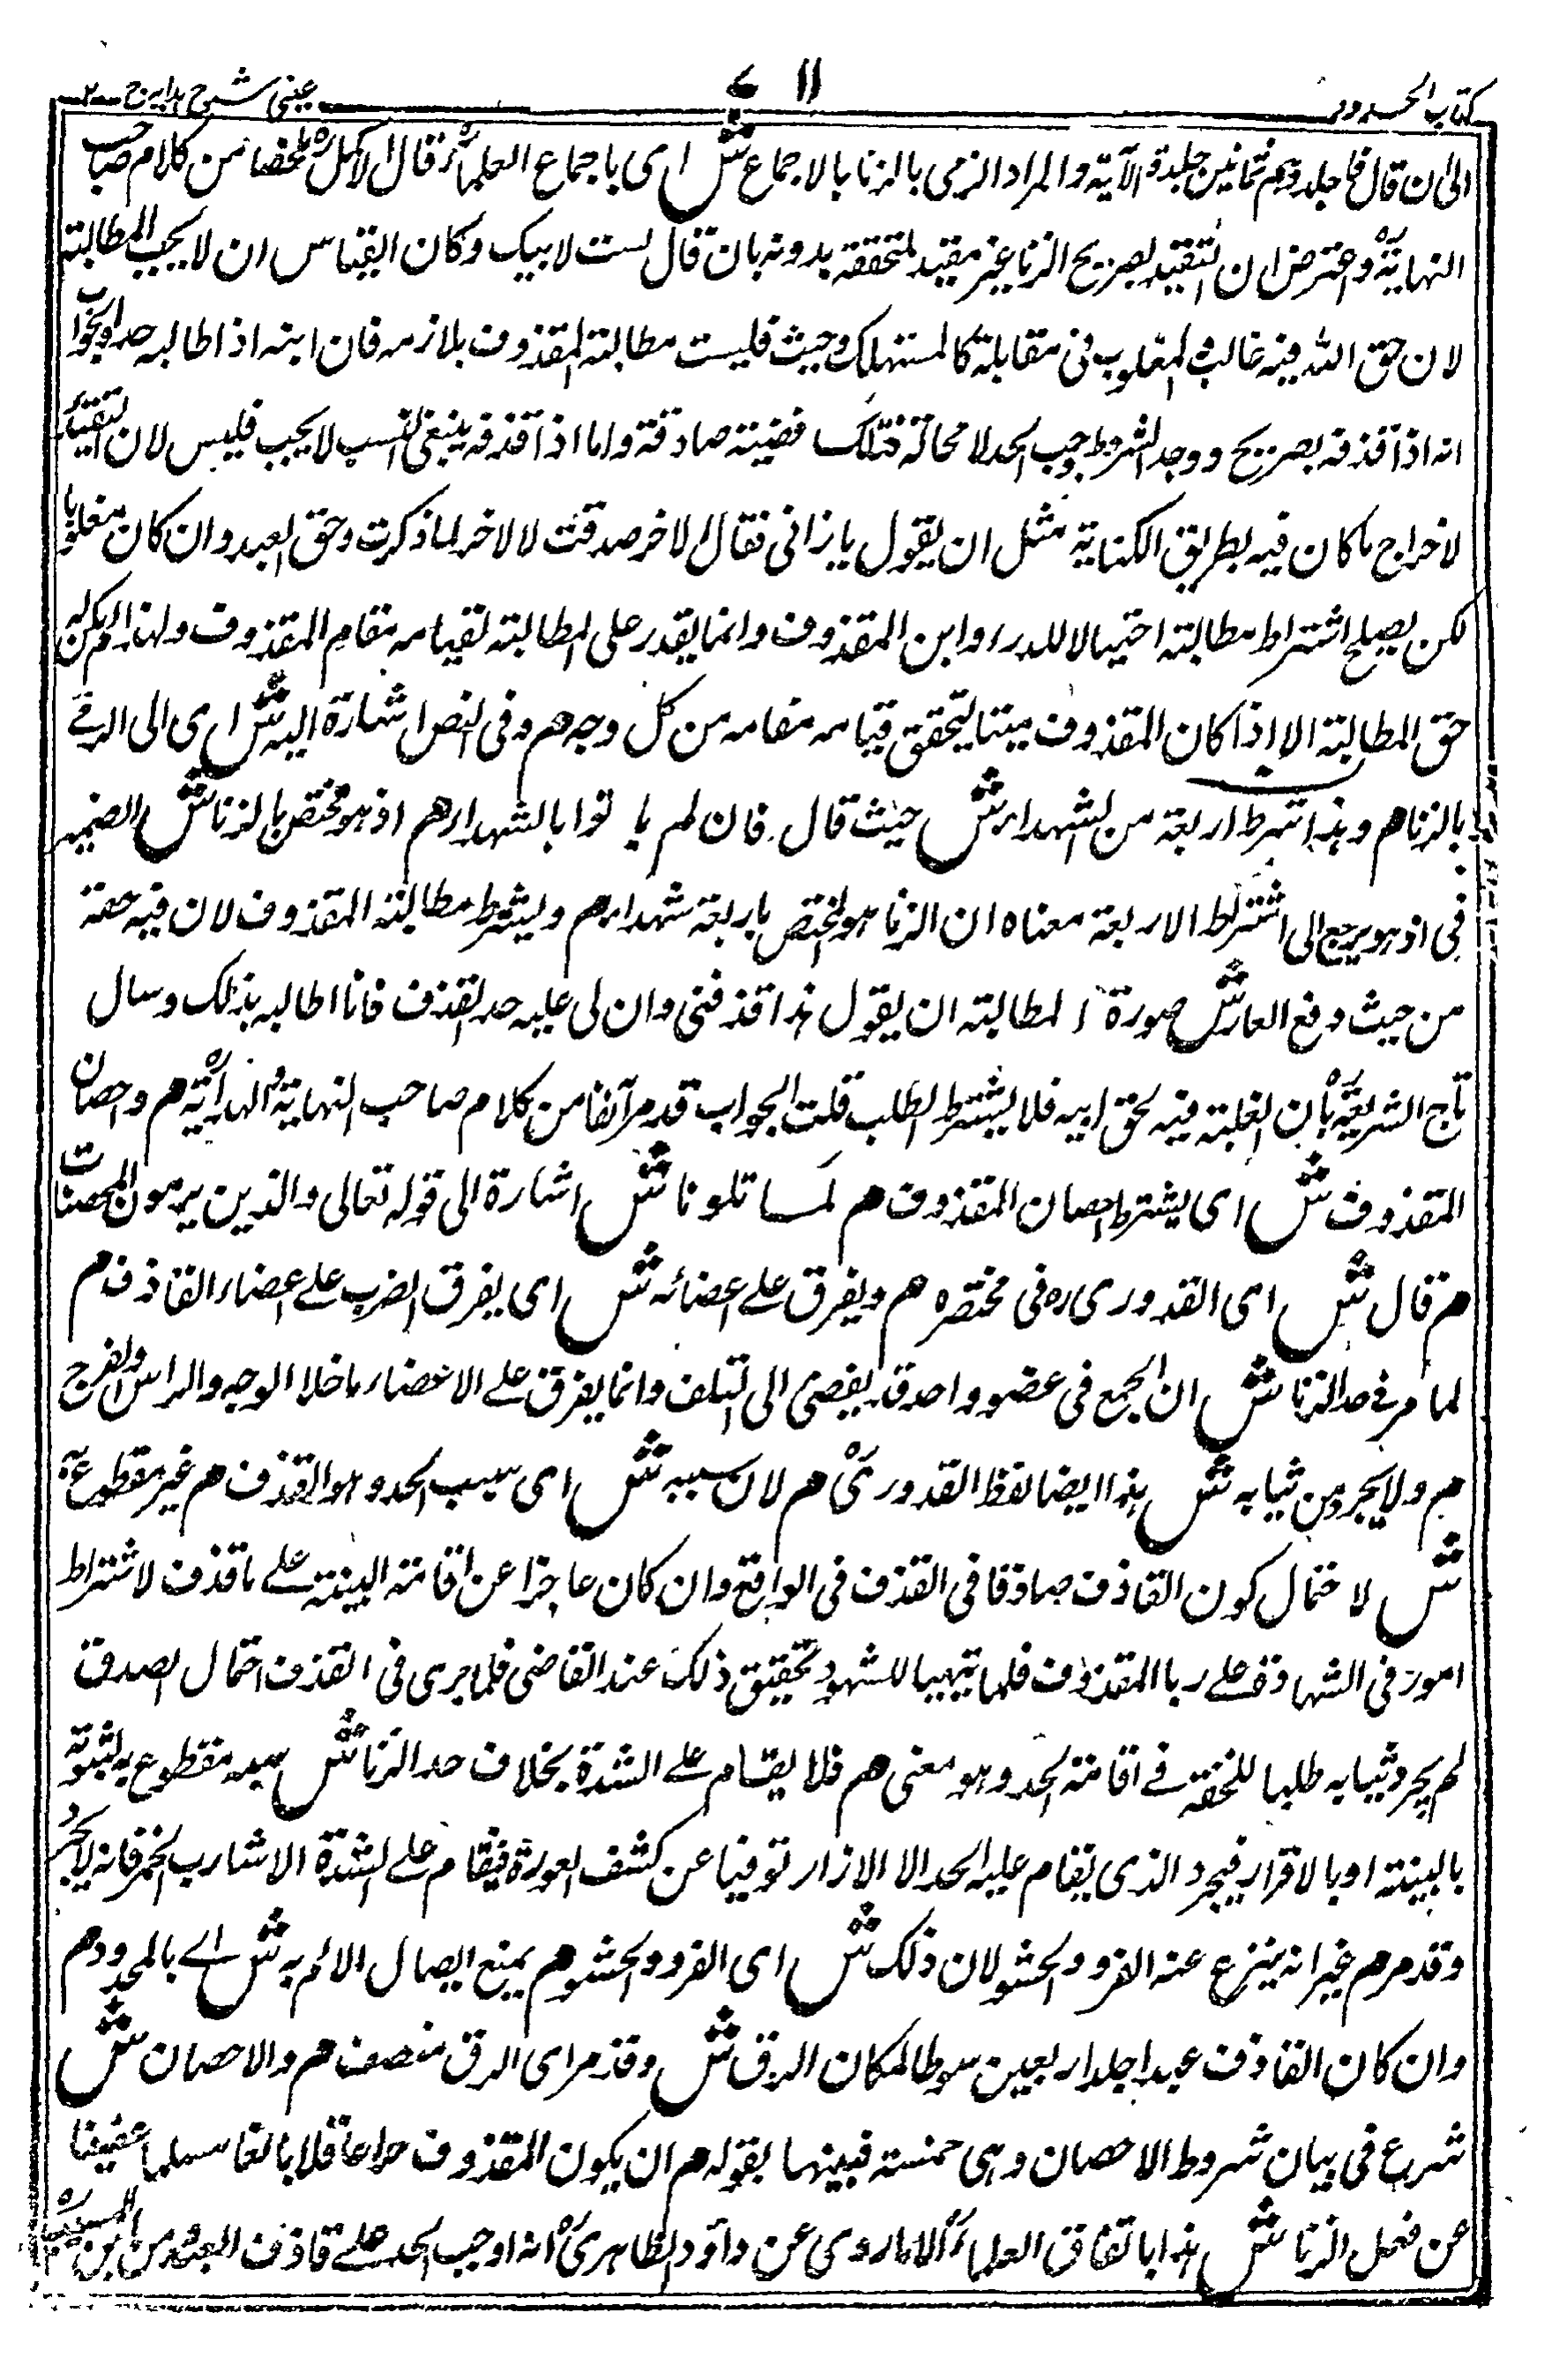 كتاب الحدود
٧١١
عينى شرح هدايہ ج ٢
الى ان قال فاجلدوهم ثمانين جلدة الآية والمراد الرمى بالزنا بالاجماع ش اى باجماع العلماءؒ قال الاكملؒ ملخصا من كلام صاحب
النهايةؒ واعترض ان التقييد بصريح الزنا غير مقيد لتحققه بدونه بان قال لست لابيك وكان القياس ان لا يجب المطالبة
لان حق الله فيه غالب والمغلوب فى مقابلة كالمستهلك وحيث فليست مطالبة المقذوف بلازمه فان ابنه اذا طالبه حد والجواب
انه اذا قذفه بصريح ووجد الشروط وجب الحد لا محالة فتلك قضية صادقة واما اذا قذفه بنفى النسب لا يجب فليس لان التقييد
لاخراج ما كان فيه بطريق الكناية مثل ان يقول يا زانى فقال الاخر صدقت لا لاخر لما ذكرت وحق العبد وان كان مغلوبا
لكن يصلح اشتراط مطالبته احتيالا للدرء وابن المقذوف وانما يقدر على المطالبة لقيامه مقام المقذوف ولهذا لم يكن له
حق المطالبة الا اذا كان المقذوف ميتا ليتحقق قيامه مقامه من كل وجه هم وفى النص اشارة اليه ش اى الى الرمى
بالزنا هم وهذا شرط اربعة من الشهداء ش حيث قال فان لم يا توا بالشهداء هم اذ هو مختص بالزنا ش الضمير
فى اذ هو يرجع الى اشتراط الاربعة معناه ان الزنا هو المختص باربعة شهداء هم ويشترط مطالبة المقذوف لان فيه حقه
من حيث دفع العار ش صورة المطالبة ان يقول هذا قذفنى وان لى عليه حد القذف فانا اطالبه بذلك وسال
تاج الشريعةؒ بان الغلبة فيه لحق ابيه فلا يشترط الطلب قلت الجواب قد مر آنفا من كلام صاحب النهاية والهدايةؒ هم واحصان
المقذوف ش اى يشترط احصان المقذوف هم لما تلونا ش اشارة الى قوله تعالى والذين يرمون المحصنات
هم قال ش اى القدورى ره فى مختصره هم ويفرق على اعضائه ش اى يفرق الضرب على اعضاء القاذف هم
لما مر فى حد الزنا ش ان الجمع فى عضو واحد قد يفضى الى التلف وانما يفرق على الاعضاء ما خلا الوجه والراس والفرج
هم ولا يجرد من ثيابه ش هذا ايضا لفظ القدورىؒ هم لان سببه ش اى سبب الحد وهو القذف هم غير مقطوع به
ش لاحتمال كون القاذف صادقا فى القذف فى الواقع وان كان عاجزا عن اقامة البينة على ما قذف لاشتراط
امور فى الشهادة على ربا المقذوف فلما يتهيا للشهود تحقيق ذلك عند القاضى فلما جرى فى القذف احتمال الصدق
لم يجرد ثيابه طلبا للخفة فى اقامة الحد وهو معنى هم فلا يقام على الشدة بخلاف حد الزنا ش سببه مقطوع به لثبوته
بالبينة او بالاقرار فيجرد الذى يقام عليه الحد الا الازار توقيا عن كشف العورة فيقام على الشدة الا شارب الخمر فانه لا يجرد
وقد مر هم غير انه ينزع عنه الفرو والحشو لان ذلك ش اى الفرو والحشو هم يمنع ايصال الالم به ش اے بالمحدود هم
وان كان القاذف عبدا جلد اربعين سوطا لمكان الرق ش وقد مر اى الرق منصف هم والاحصان ش
شرع فى بيان شروط الاحصان وهى خمسة فبينها بقوله هم ان يكون المقذوف حرا عاقلا بالغا مسلما عفيفا
عن فعل الزنا ش هذا باتفاق العلماءؒ الا ما روى عن داؤد الظاهرىؒ انه اوجب الحد على قاذف العبد وعن ابن المسيبؒ